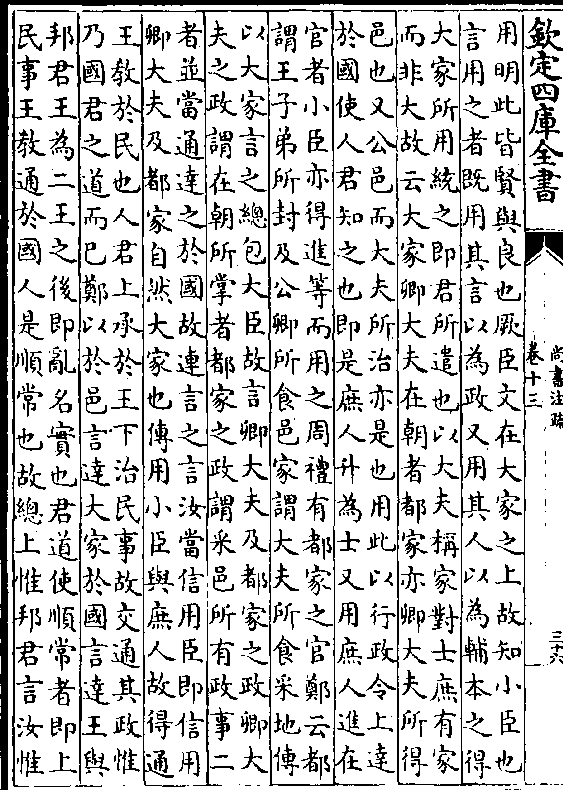 欽定四庫全書
尚書注疏
卷十三
三十六
用明此皆賢與良也厥臣文在大家之上故知小臣也
言用之者既用其言以為政又用其人以為輔本之得
大家所用統之即君所遣也以大夫稱家對士庶有家
而非大故云大家卿大夫在朝者都家亦卿大夫所得
邑也又公邑而大夫所治亦是也用此以行政令上達
於國使人君知之也即是庶人升為士又用庶人進在
官者小臣亦得進等而用之周禮有都家之官鄭云都
謂王子弟所封及公卿所食邑家謂大夫所食采地傳
以大家言之總包大臣故言卿大夫及都家之政卿大
夫之政謂在朝所掌者都家之政謂采邑所有政事二
者並當通達之於國故連言之言汝當信用臣即信用
卿大夫及都家自然大家也傳用小臣與庶人故得通
王教於民也人君上承於王下治民事故交通其政惟
乃國君之道而已鄭以於邑言達大家於國言達王與
邦君王為二王之後即亂名實也君道使順常者即上
民事王教通於國人是順常也故總上惟邦君言汝惟